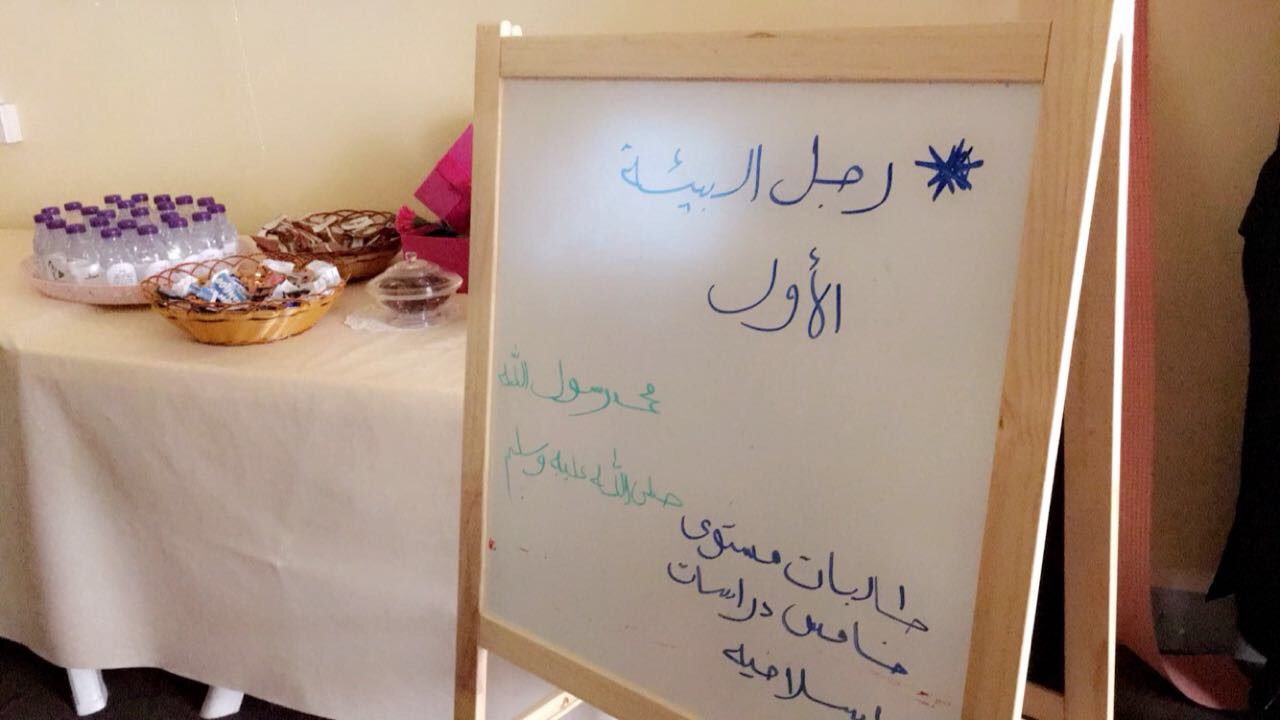 رجل البيئة
الأول
محمد رسول الله
صلى الله عليه وسلم
طالبات مستوى
خامس دراسات
إسلاميه